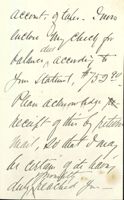 account of taxes. I now
enclose my check for
due
balance, according to
your statement, $152.20
Please acknowledge
receipt of this by return
mail, so that I may
be certain of its having
promptly
duly reached you —